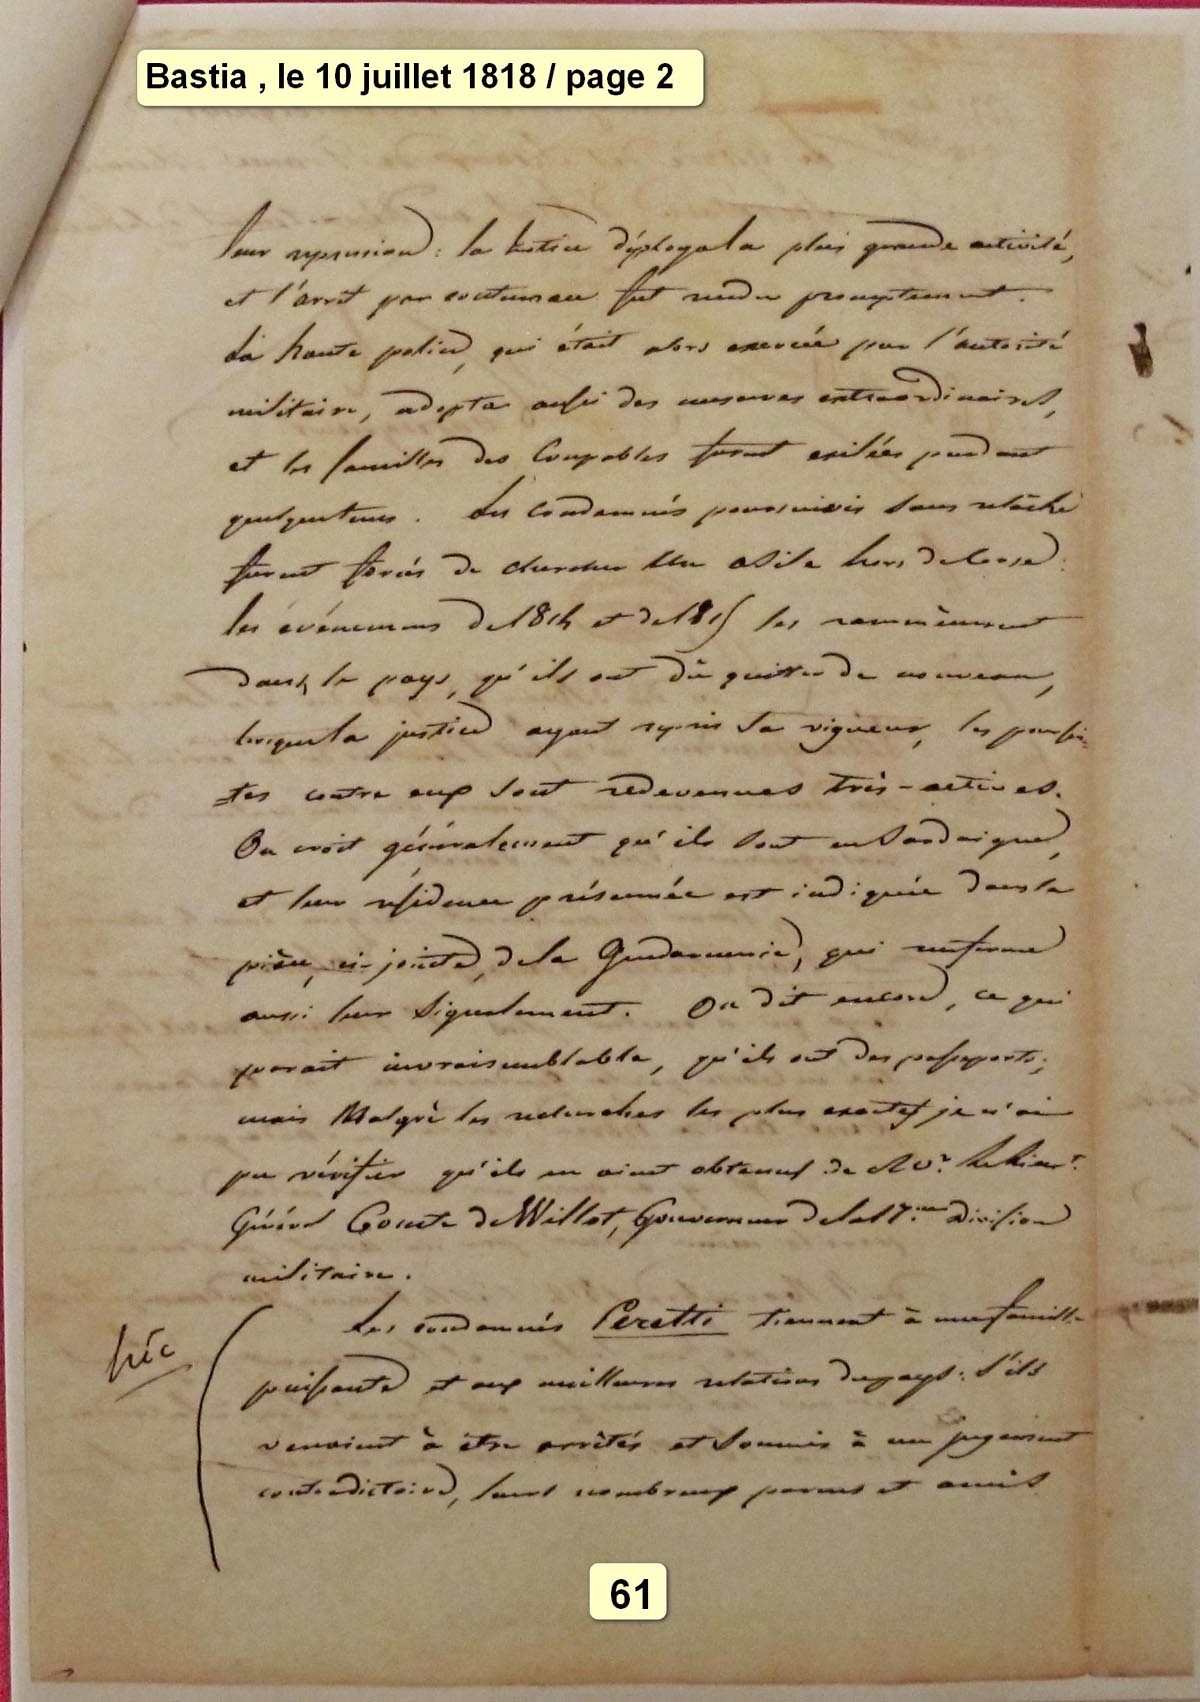 Bastia , le 10 juillet 1818 / page 2
leur repression : la Justice déploya la plus grande activité,
et l'arrêt par contumace fut rendu promptement.
La haute police, qui était alors exercée par l'autorité
militaire, adopta aussi des mesures extraordinaires,
et les familles des Coupables furent exilées pendant
quelquetems. Les Condamnés poursuivis sans relâche
furent forcés de chercher Un asile hors de Corse.
les événemens de 1814 et de 1815 les ramenèrent
dans le pays, qu'ils ont dû quitter de nouveau,
lorsque la justice ayant repris sa vigueur, les poursui-
=tes contre eux sont redevenues très-actives.
On croit généralement qu'ils sont en Sardaigne,
et leur résidence présumée est indiquée dans la
pièce, ci-jointe, de la Gendarmerie, qui renferme
aussi leur Signalement. On dit encore, ce qui
parait invraisemblable, qu'ils ont des passeports;
mais Malgré les recherches les plus exactes je n'ai
pu vérifier qu'ils en aient obtenus de Mr. le Lieut.
Général Comte de Willot, Gouverneur de la 17.me Division
militaire.
Les condamnés Peretti tiennent à une famille
puissante et aux meilleures relations du pays : s'ils
venaient à être arrêtés et soumis à un jugement
contradictoire, leurs nombreux parens et amis
61